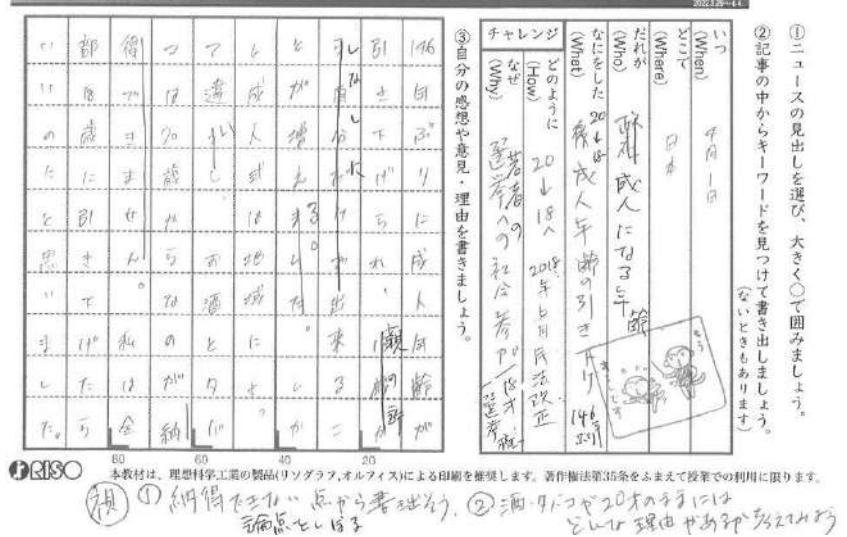 2022.3.29〜4.4
①ニュースの見出しを選び、大きく○で囲みましょう。
②記事の中からキーワードを見つけて書き出しましょう。
(ないときもあります)
いつ
(When)
4月1日
どこで
(Where)
日本
だれが
(Who)
成人になる年齢
なにをした
(What)
20↓18
成人年齢の引き下げ
146年ぶり
チャレンジ
どのように
(How)
20↓18へ 2018年6月民法改正
なぜ
(Why)
若者の
選挙への社会参加
18才選挙権
もう
すこしです
③自分の感想や意見・理由を書きましょう。
146年ぶりに成人年齢が
引き下げられ、親の許
しなしに自分だけで出来るこ
とが増えました。
しかし成人式は地域によ
って違いし。お酒とタバ
コは20歳からなのが納
得できません。私は全
部18歳に引き下げたら
いいのたと思いました。
20
40
60
80
RISO 本教材は、理想科学工業の製品(リソグラフ,オルフィス)による印刷を推奨します。著作権法第35条をふまえて授業での利用に限ります。
①納得できない点から書き出そう。
論点をしぼる
②酒・タバコが20才のままには
どんな理由があるか考えてみよう